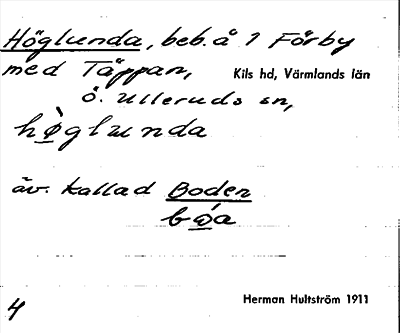 Höglunda, beb. å 1 Förby
med Täppan, Kils hd, Värmlands län
Ö. Ulleruds sn,
hø̀glunda
äv. kallad Boden
4 Herman Hultström 1911